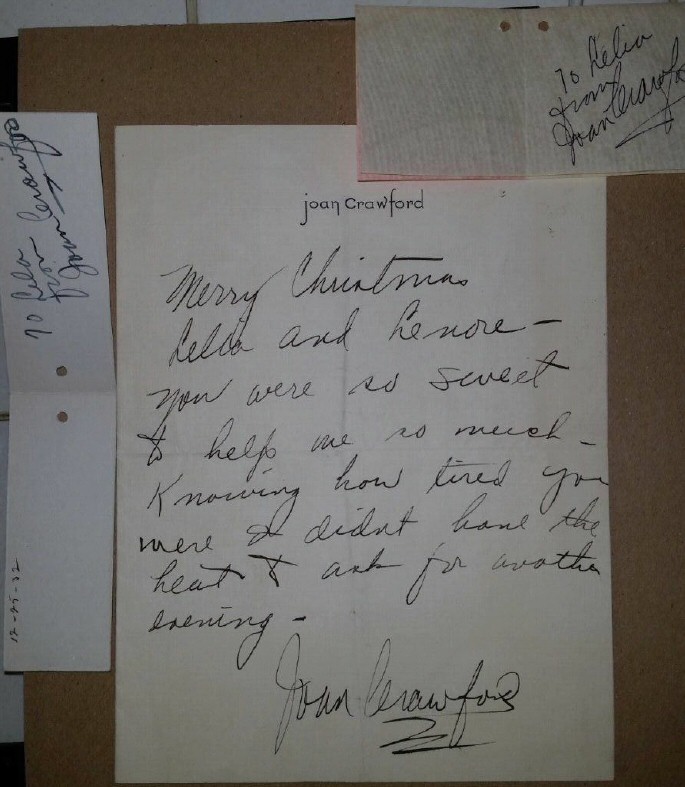 To Lelia
from
Joan Crawford
To Lela
from
Joan Crawford
12-25-32
joan crawford
Merry Christmas
Lelia and Lenore –
you were so sweet
to help me so much –
Knowing how tired you
were I didn't have the
heart to ask for another
evening –
Joan Crawford